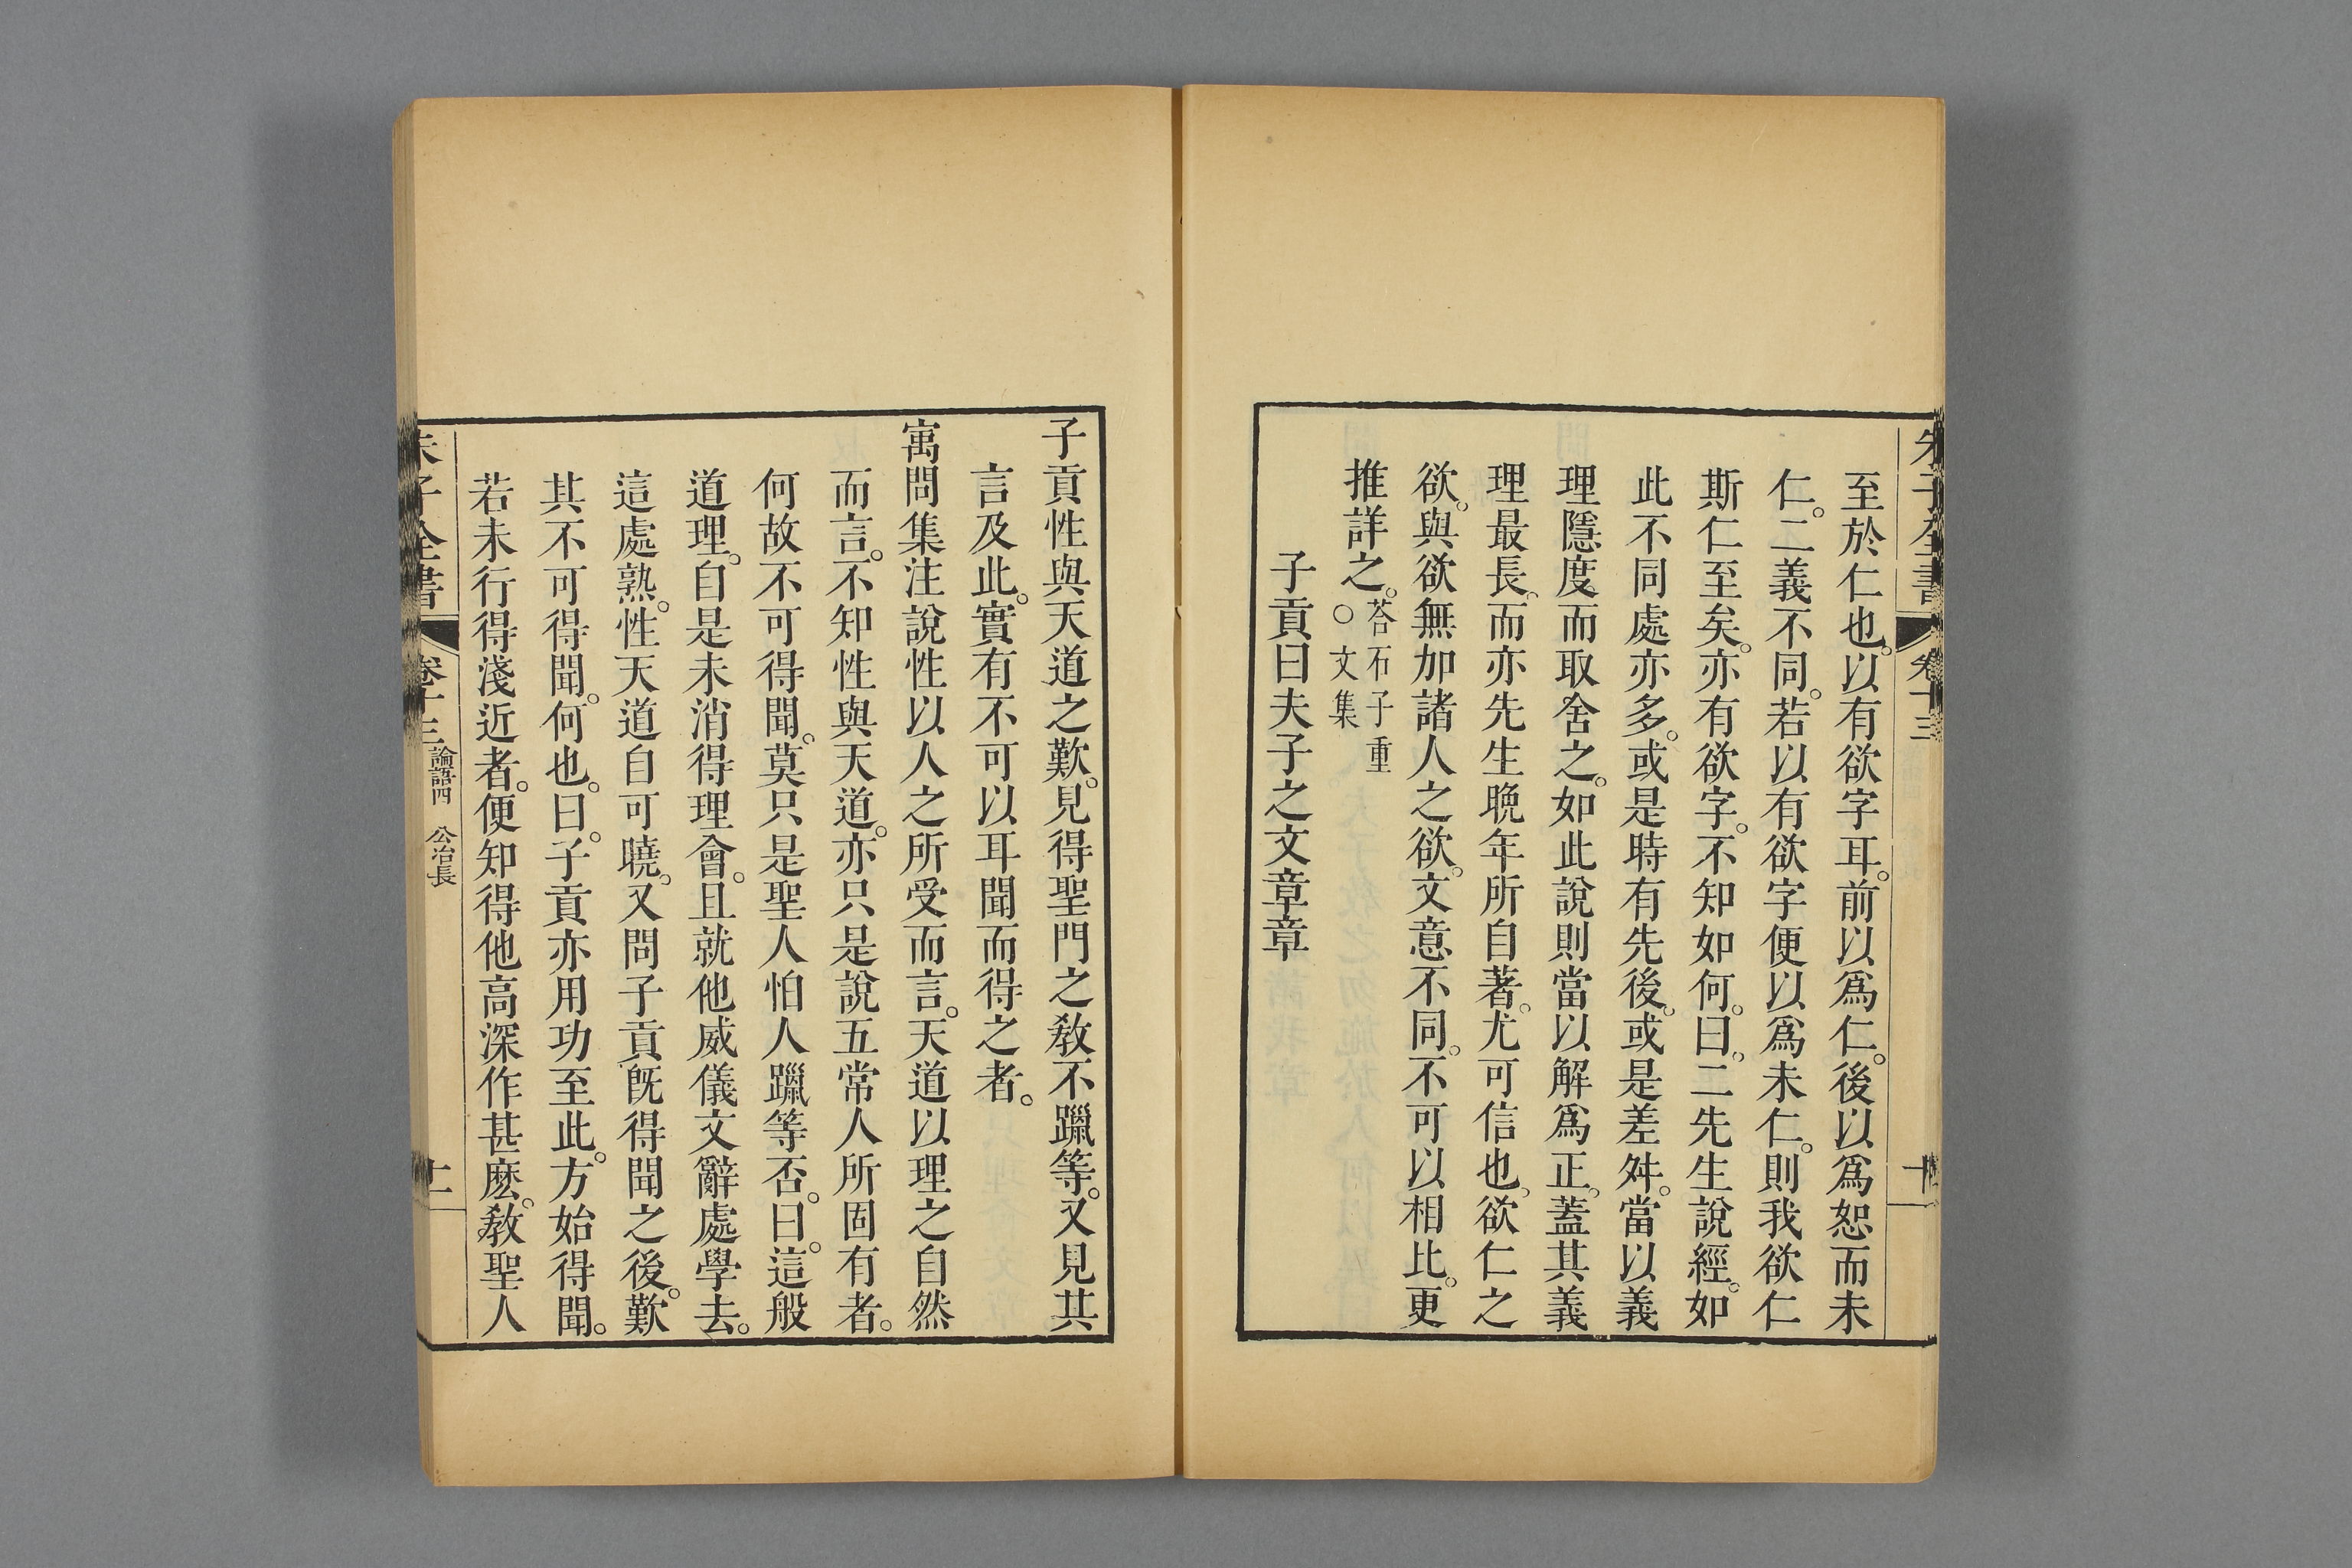 朱子全書 卷十三
至於仁也。以有欲字耳。前以爲仁。後以爲恕而未
仁。二義不同。若以有欲字便以爲未仁。則我欲仁
斯仁至矣。亦有欲字。不知如何。曰。二先生說經。如
此不同處亦多。或是時有先後。或是差舛。當以義
理隱度而取舍之。如此說則當以解爲正。蓋其義
理最長。而亦先生晚年所自著。尤可信也。欲仁之
欲。與欲無加諸人之欲。文意不同。不可以相比。更
推詳之。答石子重○文集
子貢曰夫子之文章章
子貢性與天道之歎。見得聖門之敎不躐等。又見其
言及此。實有不可以耳聞而得之者。
寓問集注說性以人之所受而言。天道以理之自然
而言。不知性與天道。亦只是說五常人所固有者。
何故不可得聞。莫只是聖人怕人躐等否。曰。這般
道理。自是未消得理會。且就他威儀文辭處學去。
這處熟。性天道自可曉。又問子貢旣得聞之後。歎
其不可得聞。何也。曰。子貢亦用功至此。方始得聞。
若未行得淺近者。便知得他高深作甚麽。敎聖人
朱子全書 卷十三 論語四 公冶長 十一